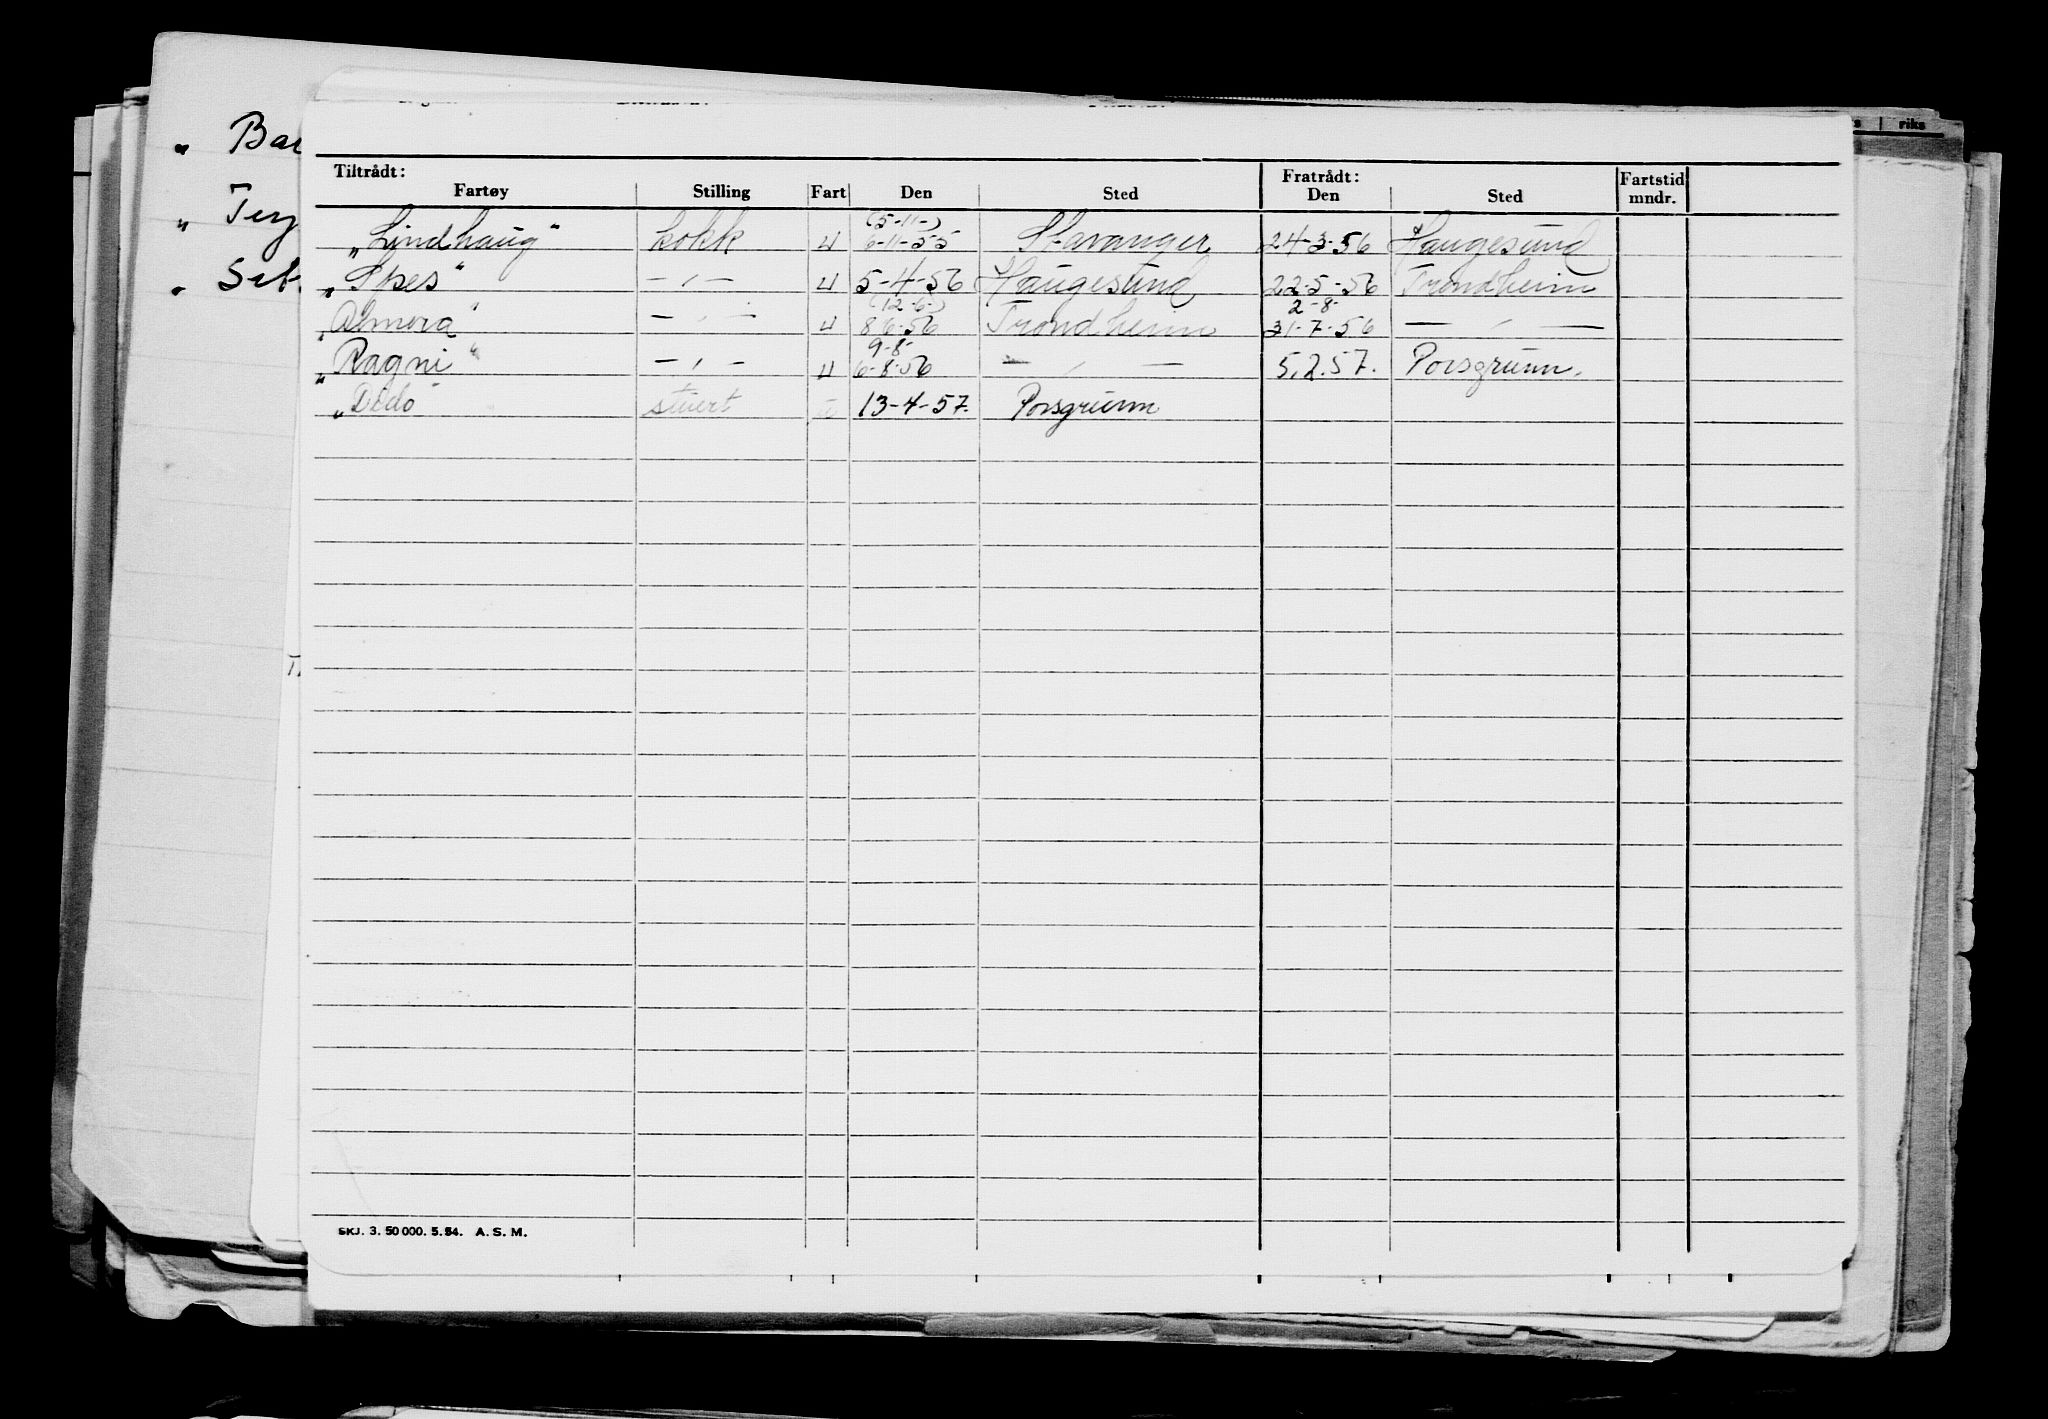 " Ba
" Ter
" Set
riks
Tiltrådt: Fratrådt:
Fartøy Stilling Fart Den Sted Den Sted Fartstid mndr.
(5-11-)
"Lindhaug" kokk U 6-11-55 Stavanger 24-3-56 Haugesund
"Spes" — „ — U 5-4-56 Haugesund 22-5-56 Trondheim
(12-6-) 2-8-
"Almora" — „ — U 8-6-56 Trondheim 31-7-56 — „ —
9-8-
"Ragni" — „ — U 6-8-56 — „ — 5.2.57. Porsgrunn.
"Dido" stuert 13-4-57. Porsgrunn
SKJ. 3. 50 000. 5.54. A. S. M.